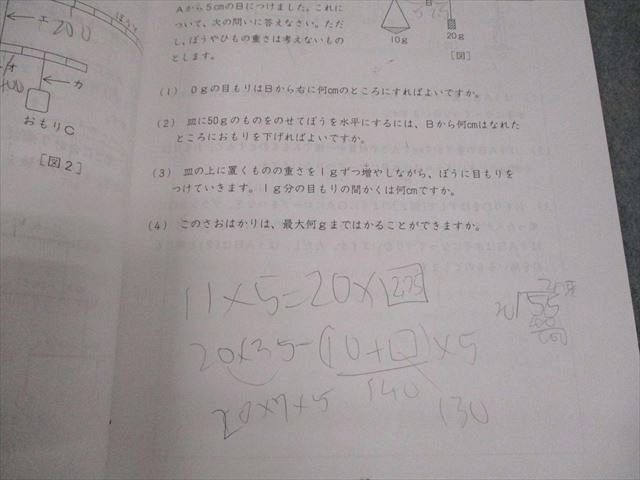 エ 200
オ
カ
おもりC
[図2]
Aから5cmの日につけました。これに
ついて、次の問いに答えなさい。ただ
し、ぼうやひもの重さは考えないもの
とします。
10g
20g
[図]
(1) 0gの目もりは日から右に何cmのところにすればよいですか。
(2) 皿に50gのものをのせてぼうを水平にするには、日から何cmはなれた
ところにおもりを下げればよいですか。
(3) 皿の上に置くものの重さを1gずつ増やしながら、ぼうに目もりを
つけていきます。1g分の目もりの間かくは何cmですか。
(4) このさおばかりは、最大何gまではかることができますか。
11×5=20×2.75
20×35=(10+□)×5
20×7×5
140
130
20 55